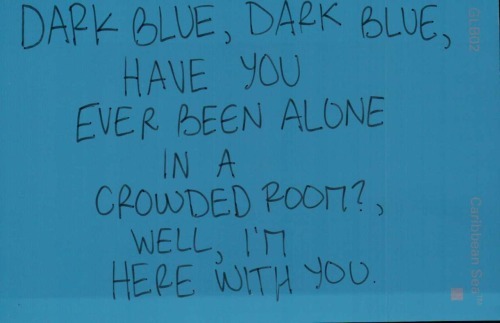 DARK BLUE, DARK BLUE,
HAVE YOU
EVER BEEN ALONE
IN A
CROWDED ROOM?,
WELL, I'M
HERE WITH YOU.
GLB02
Caribbean Sea™